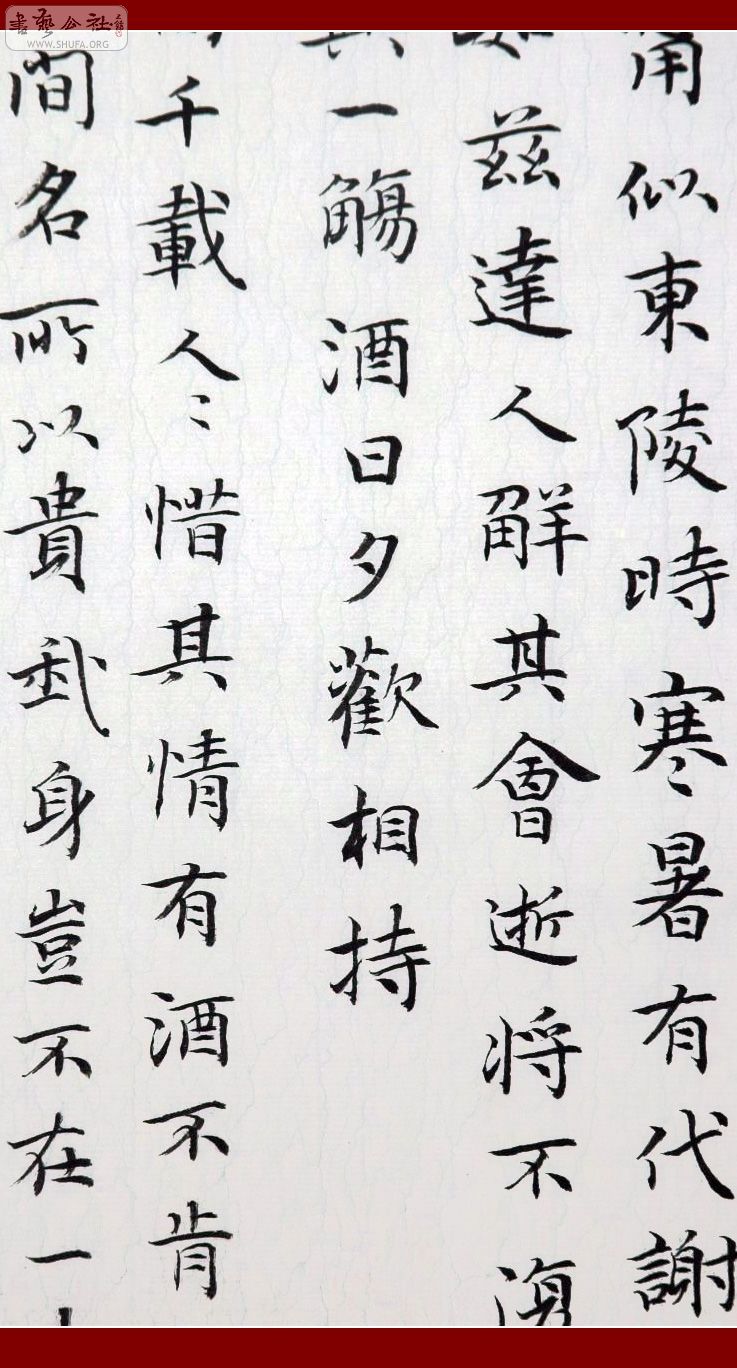 書藝公社
WWW.SHUFA.ORG
甯似東陵時寒暑有代謝
茲達人觧其會逝将不
一觴酒日夕歡相持
千載人〻惜其情有酒不肯
間名所以貴我身豈不在一